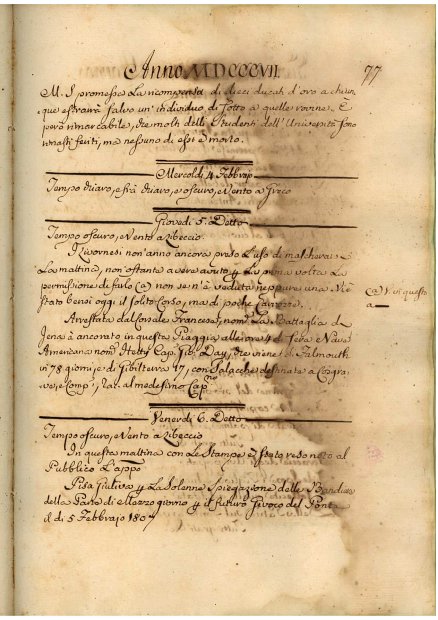 Anno MDCCCVII.
77
M. I. promesse La ricompensa di dieci ducati d'oro a chiun,
que estrarrà salvo un'individuo di sotto a quelle rovine. E
però rimarcabile, che molti delli Studenti dell'Università sono
rimasti feriti, ma nessuno di essi è morto.
Mercoldì 4 Febbraio
Tempo chiaro, e frà chiaro, e oscuro, e Vento a Greco
Giovedì 5. Detto
Tempo oscuro, e Vento a Libeccio.
I Livornesi non'anno ancora preso L'uso di mascherarsi
La mattina, non'ostante avere avuto p La prima volta La
permissione di farlo (a) non se n'è veduta neppure una. Vi è
stato bensì oggi il solito Corso, ma di poche Carrozze.
(a) V. di questo
a
Arrestata dal Corsale Francese, nom.º La Battaglia di
Jena è ancorata in questa Piaggia alle ore 4 di sera e Nave
Americana nom.ª Hetty Cap. Day, che viene di Falmouth
in 78 giorni, e di Gibilterra 17, con Salacche destinate a
e Comp.ⁱ, al medesimo Cap.º
Venerdì 6. Detto
Tempo oscuro, e Vento a Libeccio
In questa mattina con Le Stampe è stato reso noto al
Pubblico L'app.º
Pisa Giuliva p La Solenne Spiegazione delle Bandiere
della Parte di Mezzo giorno p il futuro Giuoco del Ponte
il dì 5 Febbraio 1807